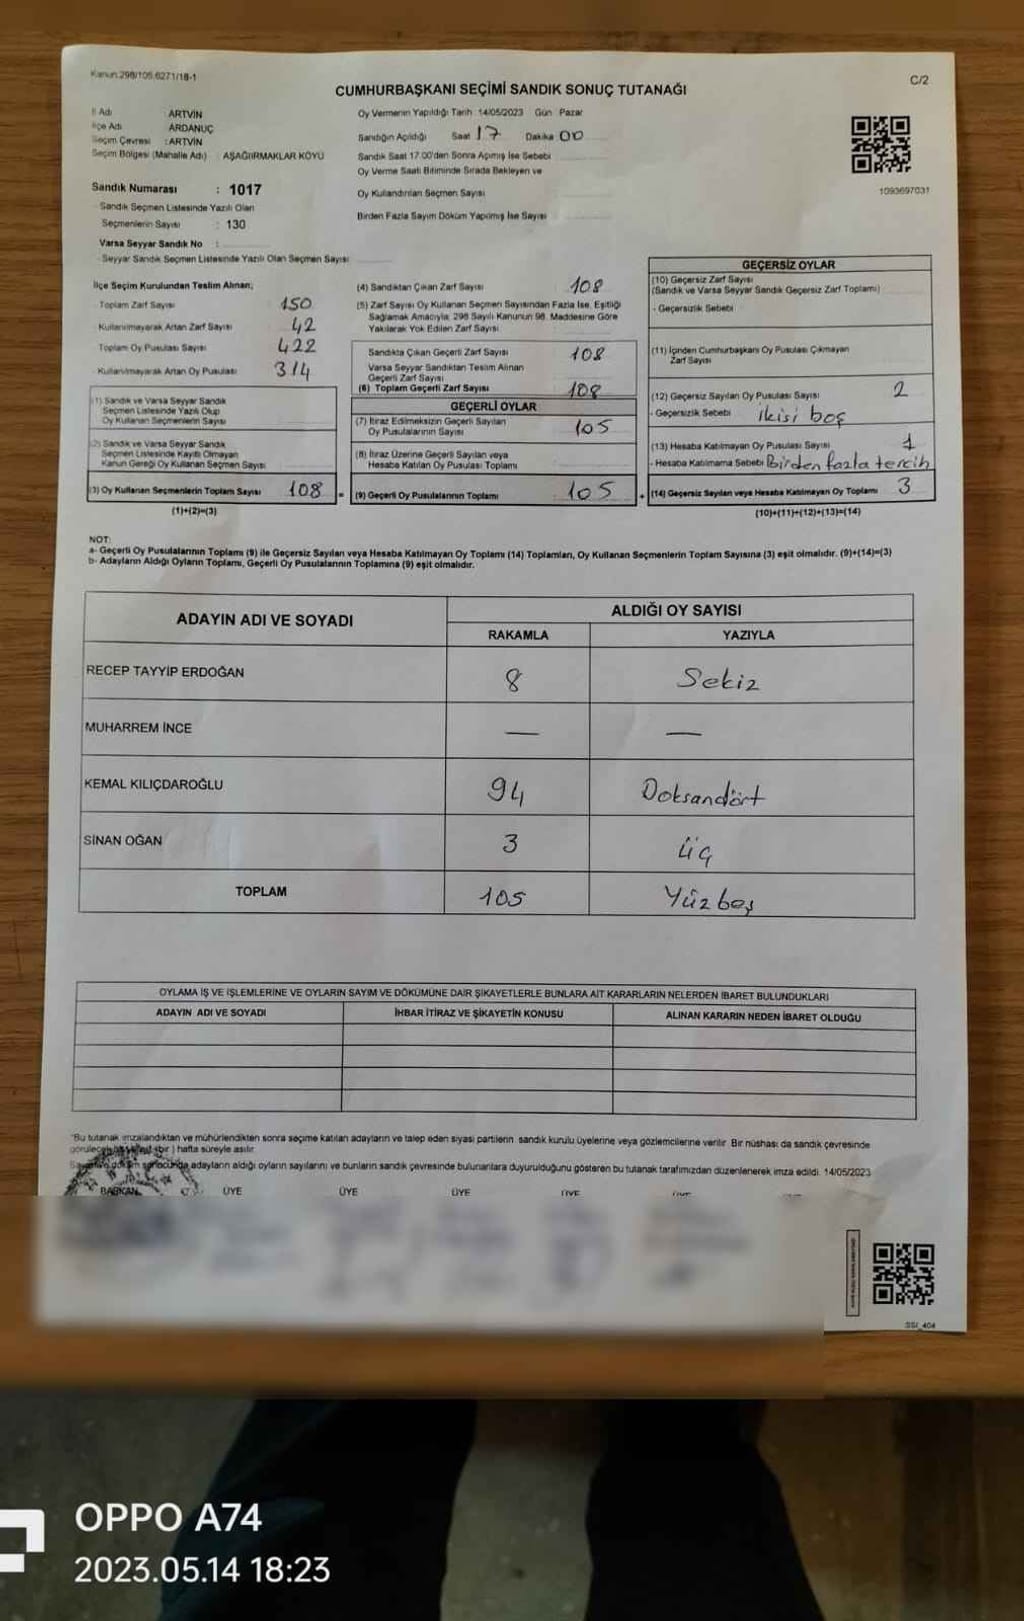 Kanun:298/105,6271/18-1
C/2
CUMHURBAŞKANI SEÇİMİ SANDIK SONUÇ TUTANAĞI
İl Adı ARTVİN
İlçe Adı ARDANUÇ
Seçim Çevresi :ARTVİN
Seçim Bölgesi (Mahalle Adı) AŞAĞIIRMAKLAR KÖYÜ
Sandık Numarası : 1017
Sandık Seçmen Listesinde Yazılı Olan
Seçmenlerin Sayısı : 130
Varsa Seyyar Sandık No :
Seyyar Sandık Seçmen Listesinde Yazılı Olan Seçmen Sayısı
Oy Vermenin Yapıldığı Tarih 14/05/2023 Gün Pazar
Sandığın Açıldığı Saat 17 Dakika 00
Sandık Saat 17.00'den Sonra Açılmış İse Sebebi
Oy Verme Saati Bitiminde Sırada Bekleyen ve
Oy Kullandırılan Seçmen Sayısı
Birden Fazla Sayım Döküm Yapılmış İse Sayısı
1093697031
İlçe Seçim Kurulundan Teslim Alınan;
Toplam Zarf Sayısı 150
Kullanılmayarak Artan Zarf Sayısı 42
Toplam Oy Pusulası Sayısı 422
Kullanılmayarak Artan Oy Pusulası 314
(1) Sandık ve Varsa Seyyar Sandık
Seçmen Listesinde Yazılı Olup
Oy Kullanan Seçmenlerin Sayısı
(2) Sandık ve Varsa Seyyar Sandık
Seçmen Listesinde Kayıtlı Olmayan
Kanun Gereği Oy Kullanan Seçmen Sayısı
(3) Oy Kullanan Seçmenlerin Toplam Sayısı 108
(1)+(2)=(3)
(4) Sandıktan Çıkan Zarf Sayısı 108
(5) Zarf Sayısı Oy Kullanan Seçmen Sayısından Fazla İse, Eşitliği
Sağlamak Amacıyla; 298 Sayılı Kanunun 98. Maddesine Göre
Yakılarak Yok Edilen Zarf Sayısı
Sandıkta Çıkan Geçerli Zarf Sayısı 108
Varsa Seyyar Sandıktan Teslim Alınan
Geçerli Zarf Sayısı
(6) Toplam Geçerli Zarf Sayısı 108
GEÇERLİ OYLAR
(7) İtiraz Edilmeksizin Geçerli Sayılan
Oy Pusulalarının Sayısı 105
(8) İtiraz Üzerine Geçerli Sayılan veya
Hesaba Katılan Oy Pusulası Toplamı
= (9) Geçerli Oy Pusulalarının Toplamı 105
GEÇERSİZ OYLAR
(10) Geçersiz Zarf Sayısı
(Sandık ve Varsa Seyyar Sandık Geçersiz Zarf Toplamı)
- Geçersizlik Sebebi
(11) İçinden Cumhurbaşkanı Oy Pusulası Çıkmayan
Zarf Sayısı
(12) Geçersiz Sayılan Oy Pusulası Sayısı 2
- Geçersizlik Sebebi ikisi boş
(13) Hesaba Katılmayan Oy Pusulası Sayısı 1
- Hesaba Katılmama Sebebi Birden fazla tercih
+ (14) Geçersiz Sayılan veya Hesaba Katılmayan Oy Toplamı 3
(10)+(11)+(12)+(13)=(14)
NOT:
a- Geçerli Oy Pusulalarının Toplamı (9) ile Geçersiz Sayılan veya Hesaba Katılmayan Oy Toplamı (14) Toplamları, Oy Kullanan Seçmenlerin Toplam Sayısına (3) eşit olmalıdır. (9)+(14)=(3)
b- Adayların Aldığı Oyların Toplamı, Geçerli Oy Pusulalarının Toplamına (9) eşit olmalıdır.
ADAYIN ADI VE SOYADI ALDIĞI OY SAYISI
RAKAMLA YAZIYLA
RECEP TAYYİP ERDOĞAN 8 Sekiz
MUHARREM İNCE — —
KEMAL KILIÇDAROĞLU 94 Doksandört
SİNAN OĞAN 3 üç
TOPLAM 105 Yüzbeş
OYLAMA İŞ VE İŞLEMLERİNE VE OYLARIN SAYIM VE DÖKÜMÜNE DAİR ŞİKAYETLERLE BUNLARA AİT KARARLARIN NELERDEN İBARET BULUNDUKLARI
ADAYIN ADI VE SOYADI İHBAR İTİRAZ VE ŞİKAYETİN KONUSU ALINAN KARARIN NEDEN İBARET OLDUĞU
"Bu tutanak imzalandıktan ve mühürlendikten sonra seçime katılan adayların ve talep eden siyasi partilerin sandık kurulu üyelerine veya gözlemcilerine verilir. Bir nüshası da sandık çevresinde
hafta süreyle asılır.
adayların aldığı oyların sayılarını ve bunların sandık çevresinde bulunanlara duyurulduğunu gösteren bu tutanak tarafımızdan düzenlenerek imza edildi. 14/05/2023
BAŞKAN ÜYE ÜYE ÜYE ÜYE ÜYE
SSI_404
OPPO A74
2023.05.14 18:23